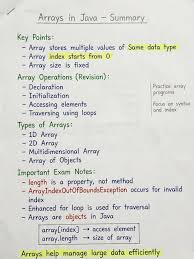 Arrays in Java – Summary
Key Points:
- Array stores multiple values of Same data type
- Array index starts from 0
- Array size is fixed
Array Operations (Revision):
- Declaration
- Initialization
- Accessing elements
- Traversing using loops
Practice array
programs
Focus on syntax
and index
Types of Arrays:
- 1D Array
- 2D Array
- Multidimensional Array
- Array of Objects
Important Exam Notes:
- length is a property, not method
- ArrayIndexOutOfBoundsException occurs for invalid
index
- Enhanced for loop is used for traversal
- Arrays are objects in Java
array[index] → access element
array.length → size of array
Arrays help manage large data efficiently